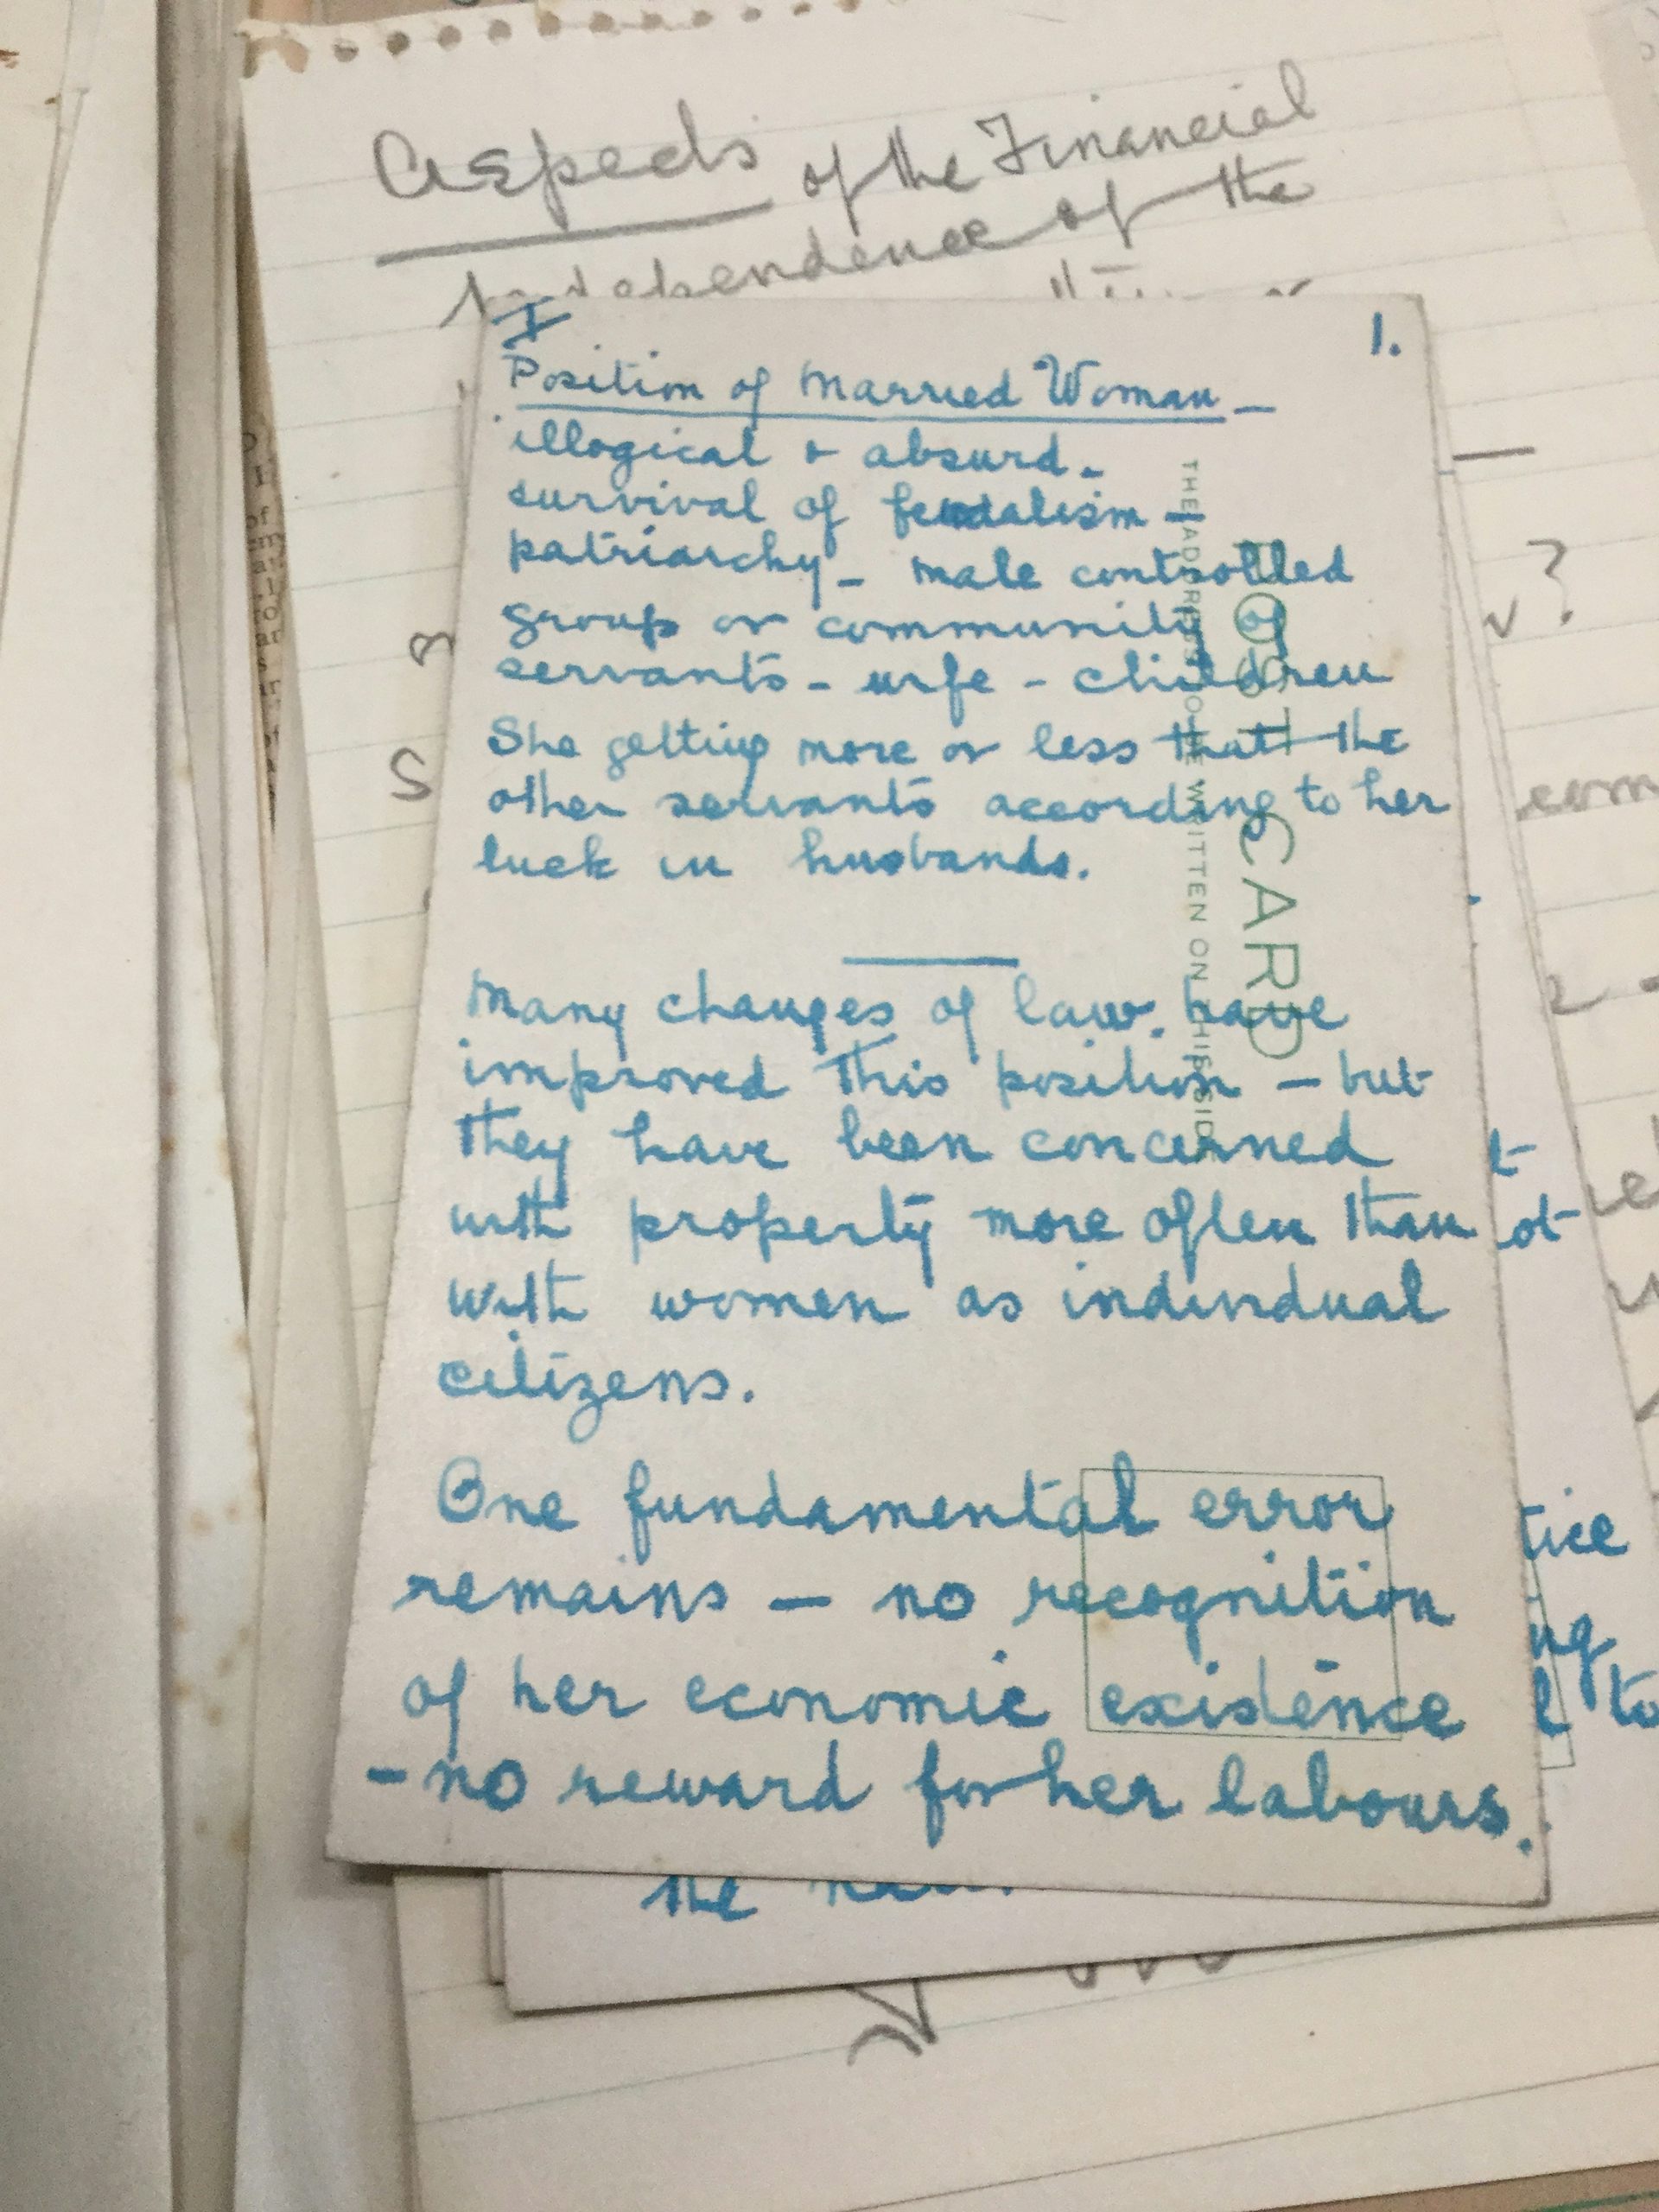 Aspects of the Financial
Independence of the
I
1.
Position of Married Woman —
illogical & absurd.
survival of feudalism —
patriarchy - male controlled
group or community of
servants - wife - children
She getting more or less that the
other servants according to her
luck in husbands.
Many changes of law. have
improved this position - but
they have been concerned
with property more often than
with women as individual
citizens.
One fundamental error
remains - no recognition
of her economic existence
- no reward for her labours.
POST CARD
THE ADDRESS TO BE WRITTEN ON THIS SIDE
tice
ng
to
the